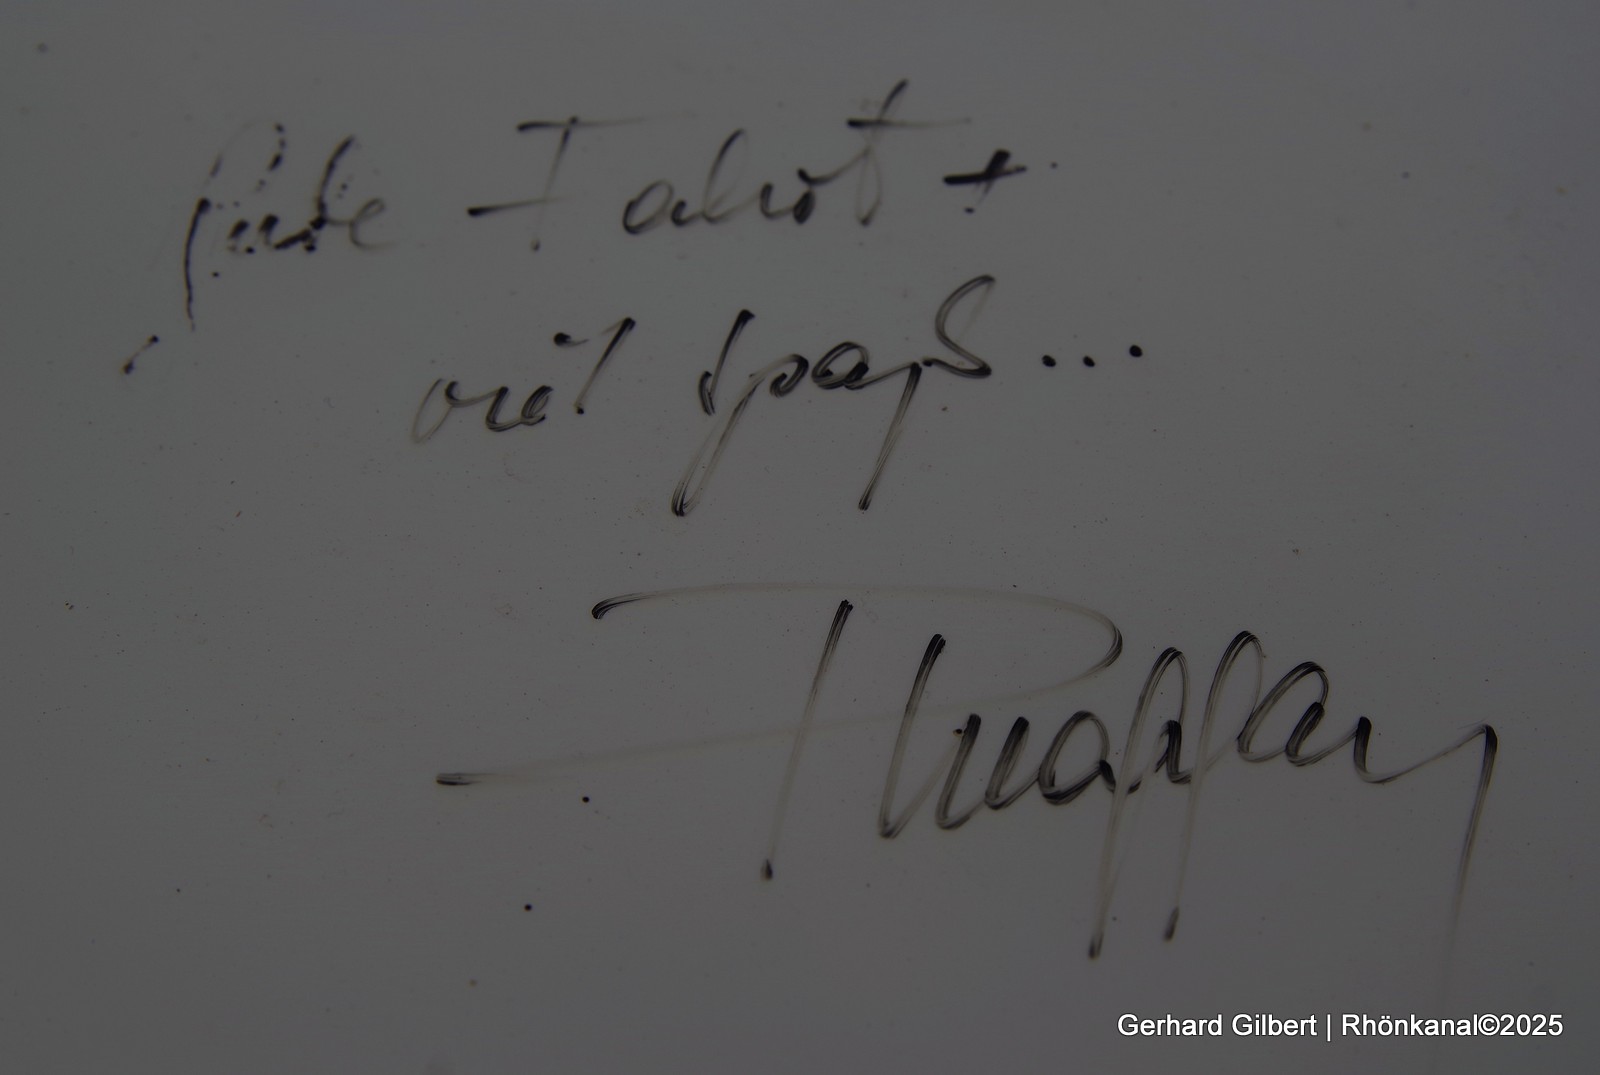 Gute Fahrt +
viel Spaß...
P Maffay
Gerhard Gilbert | Rhönkanal©2025